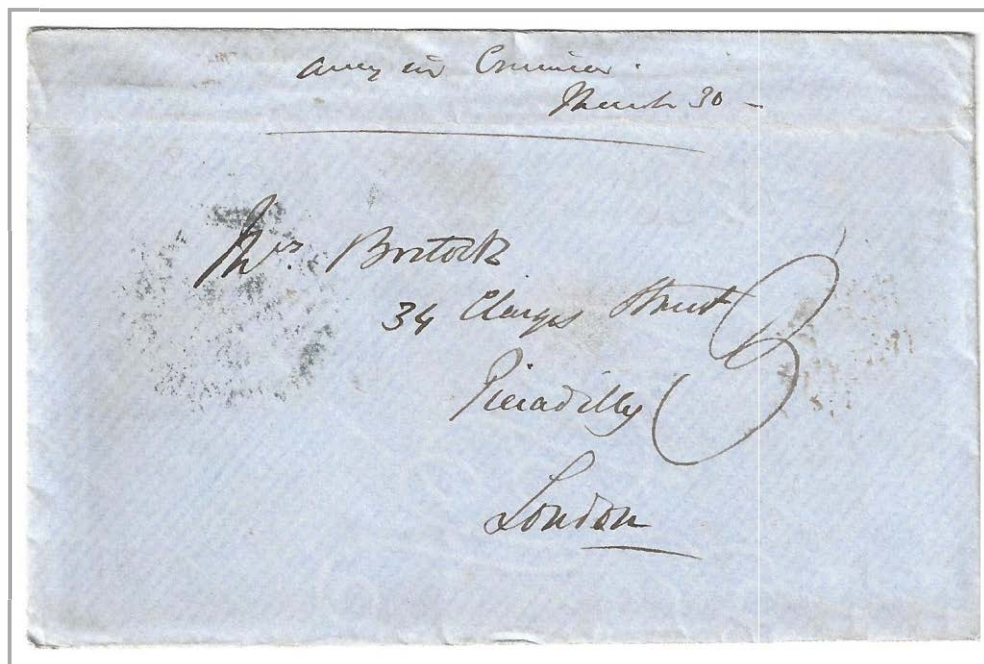 Army in Crimea.
March 30 -
Mrs. Bostock
34 Clarges Street
3
Piccadilly
London